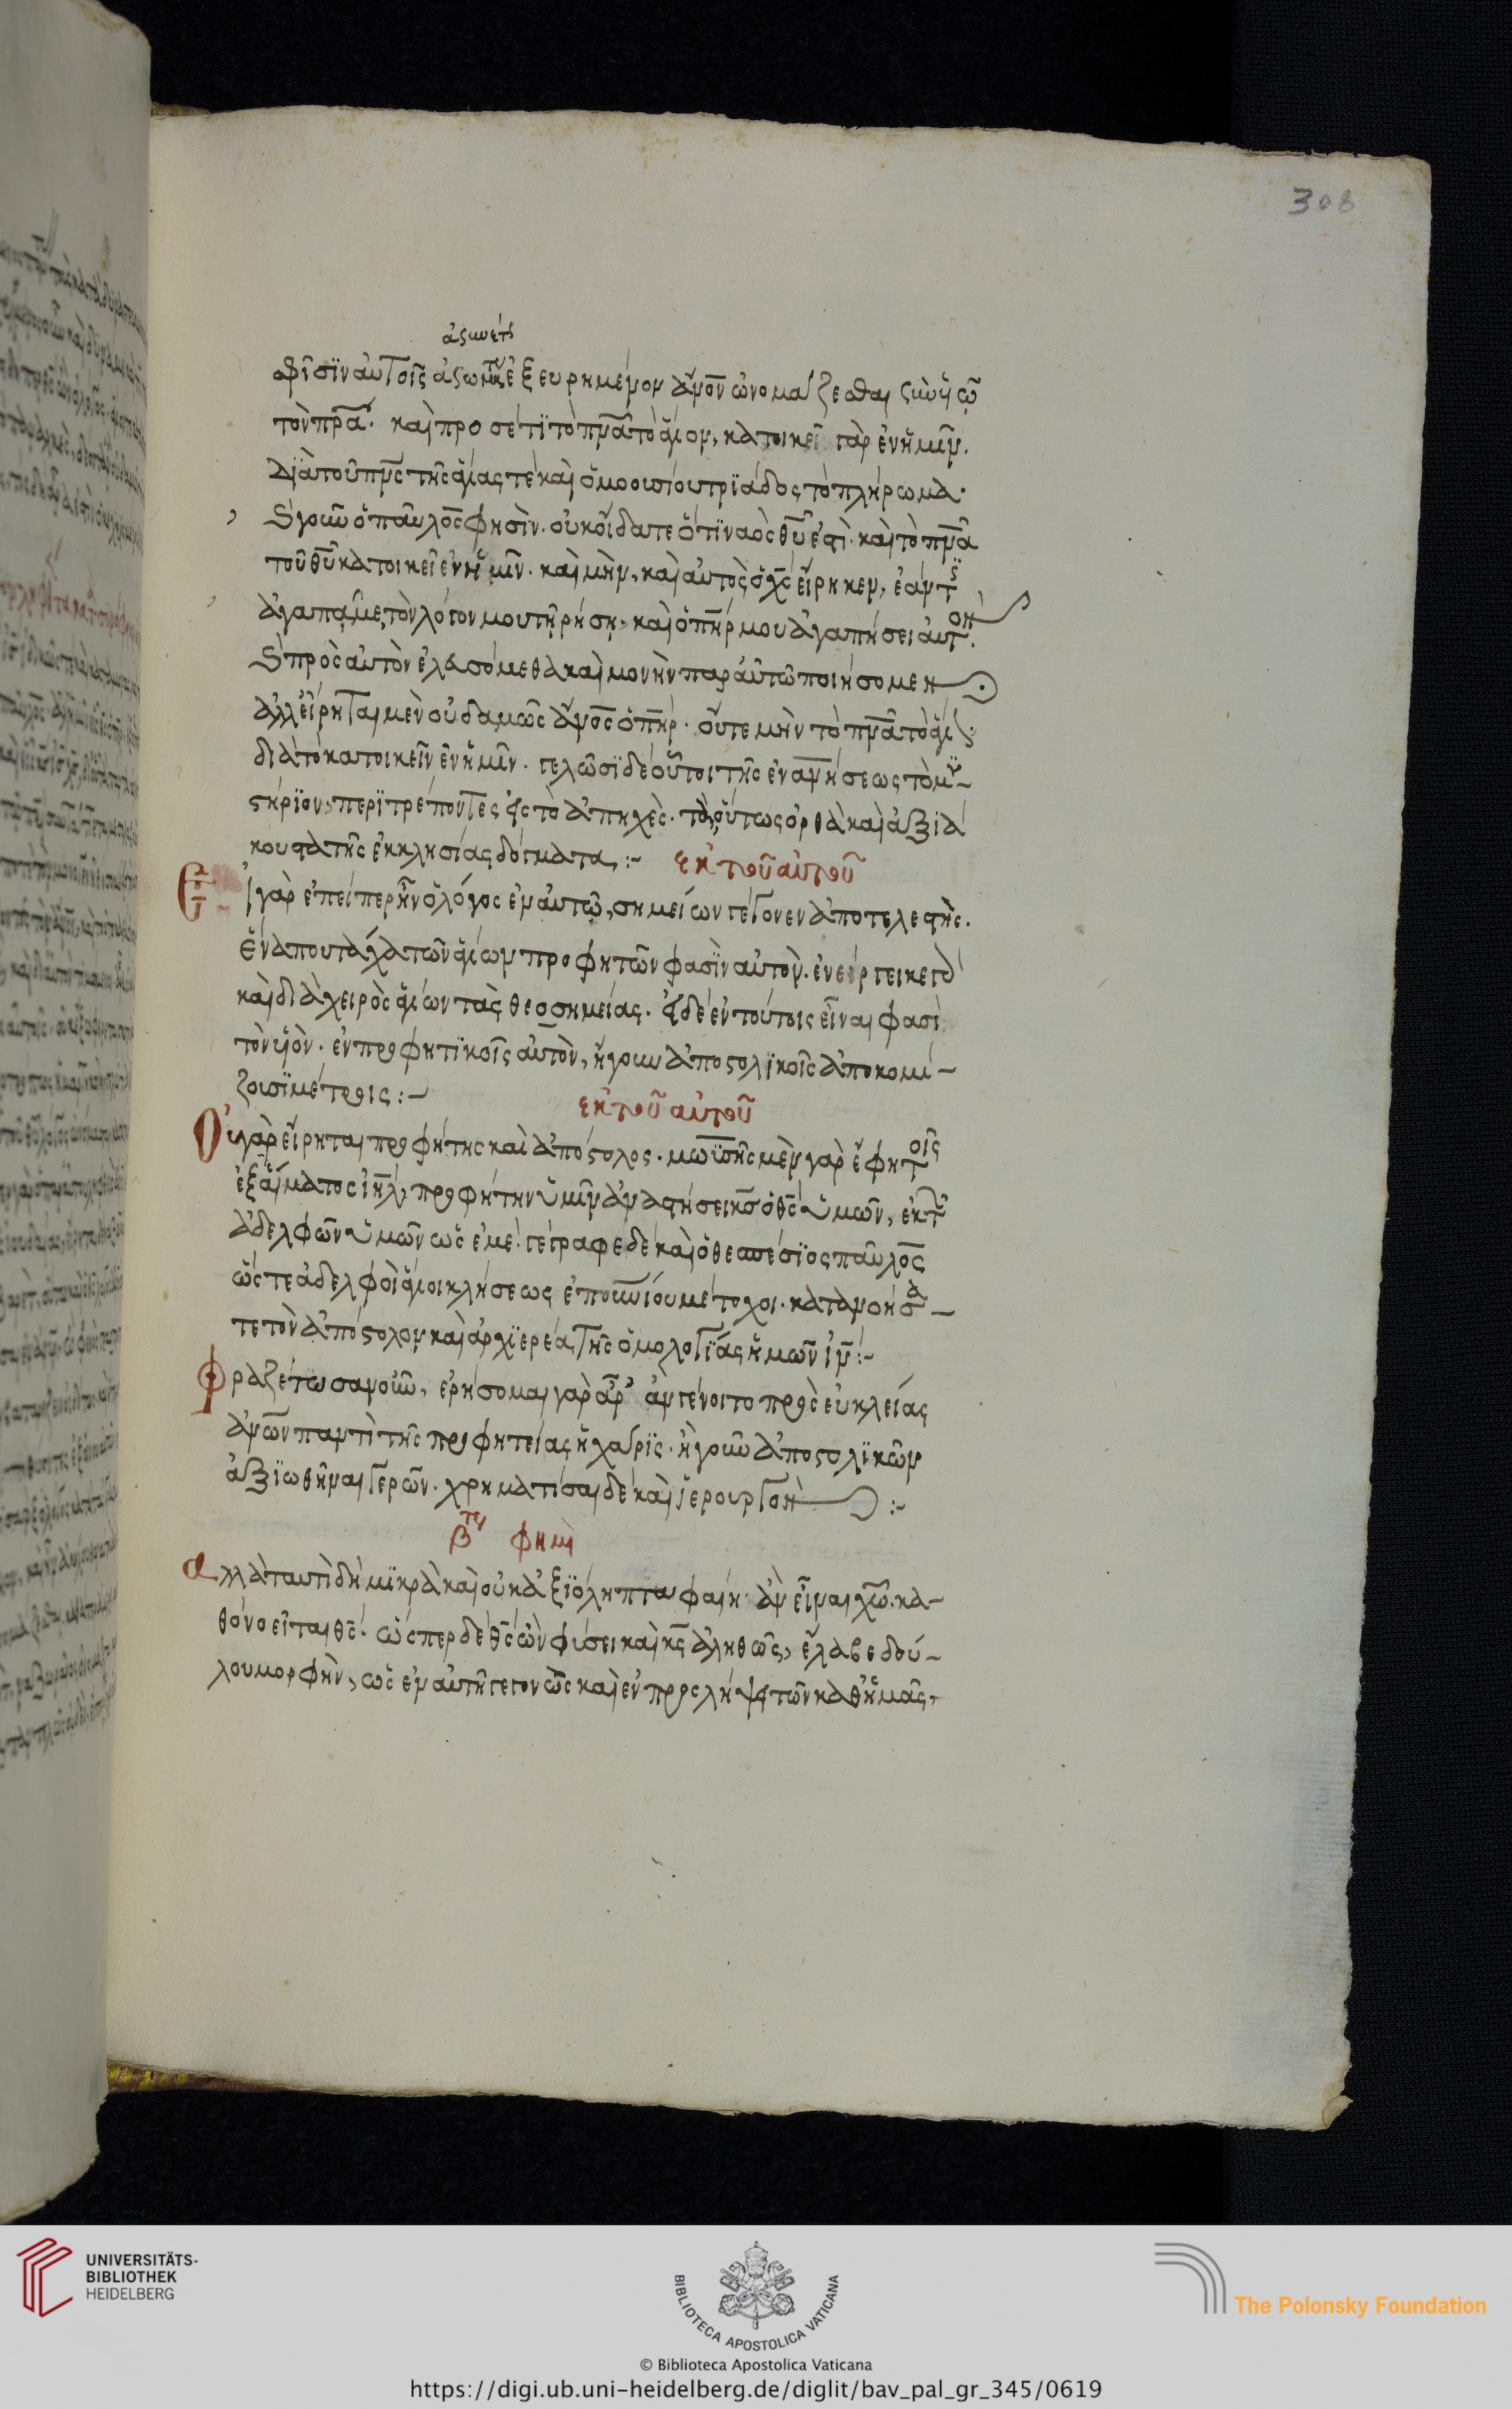 308
τὸν πρα. καὶ προσέτι τὸ πνα τὸ ἅγιον, κατοικεῖ γὰρ ἐν ἡμῖν.
διὰ τοῦ πνς τῆς ἁγίας τὲ καὶ ὁμοουσίου τριάδος τὸ πλήρωμα.
ὁ παῦλος φησίν. οὐκ οἴδατε ὅτι ναὸς θυ ἐστὲ. καὶ τὸ πνα
τοῦ θυ κατοικεῖ ἐν ἡμῖν. καὶ μὴν, καὶ αὐτὸς ὁ χς εἴρηκεν, ἐάν τις
ἀγαπᾷ με, τὸν λόγον μου τηρήσῃ, καὶ ὁ πηρ μου ἀγαπήσει αὐτὸν.
πρὸς αὐτὸν ἐλευσόμεθα καὶ μονὴν παρ αὐτῶ ποιήσομεν
ἀλλ εἴρηται μὲν οὐδαμῶς ἄνος ὁ πηρ. οὔτε μὴν τὸ πνα τὸ ἅγιον
διὰ τὸ κατοικεῖν ἐν ἡμῖν. γελῶσι δὲ οὗτοι τῆς ἐνανησεως τὸ μυ-
στήριον, περιτρέποντες εἰς τὸ ἀπηχὲς. τὰ οὕτως ὀρθὰ καὶ ἀξιά
κουστα τῆς ἐκκλησίας δόγματα :-   ἐκ τοῦ αὐτοῦ
Εἰ γὰρ ἐπείπερ ἦν ὁ λόγος ἐν αὐτῶ, σημείων γέγονεν ἀποτελεστὴς.
ἕνα που τάχα τῶν ἁγίων προφητῶν φασὶν αὐτὸν. ἐνεργει κετο
καὶ διὰ χειρὸς ἁγίων τὰς θεοσημείας. εἰ δὲ ἐν τούτοις εἶναι φασὶ
τὸν υἱὸν. ἐν προφητικοῖς αὐτὸν, ἤγουν ἀποστολικοῖς ἀποκομί-
ζουσι μέτροις :-
ἐκ τοῦ αὐτοῦ
Οὐ γὰρ εἴρηται προφήτης καὶ ἀπόστολος. μωϋσῆς μὲν γὰρ ἔφη τοῖς
ἐξ αἵματος ιηλ, προφήτην ὑμῖν ἀναστήσει κς ὁ θς ὑμῶν, ἐκ τῶν
ἀδελφῶν ὑμῶν ὡς ἐμέ. γέγραφε δὲ καὶ ὁ θεσπέσιος παῦλος
ὥστε ἀδελφοὶ ἅγιοι κλήσεως ἐπουνίου μέτοχοι. κατανοήσα-
τε τὸν ἀπόστολον καὶ ἀρχιερέα τῆς ὁμολογίας ἡμῶν ιν :-
Φραζέτωσαν οὖν, ἐρήσομαι γὰρ ἆρ ἂν γένοιτο πρὸς εὐκλείας
ἀνων παντὶ τῆς προφητείας ἡ χάρις. ἤγουν ἀποστολικῶν
ἀξιωθῆναι γερῶν. χρηματίσαι δὲ καὶ ἱερουργὸν :-
φημὶ
Αλλὰ ταυτὶ δὴ μικρὰ καὶ οὐκ ἀξιόληπτα φαίη ἂν εἶναι χω. κα-
θὸ νοεῖται θς. ὥσπερ δὲ θς ὢν φύσει καὶ κς ἀληθῶς, ἔλαβε δού-
λου μορφὴν, ὡς ἐν αὐτῆ γεγονὼς καὶ ἐν προσλήψει τῶν καθ ἡμᾶς,
UNIVERSITÄTS-
BIBLIOTHEK
HEIDELBERG
BIBLIOTECA APOSTOLICA VATICANA
The Polonsky Foundation
© Biblioteca Apostolica Vaticana
https://digi.ub.uni-heidelberg.de/diglit/bav_pal_gr_345/0619